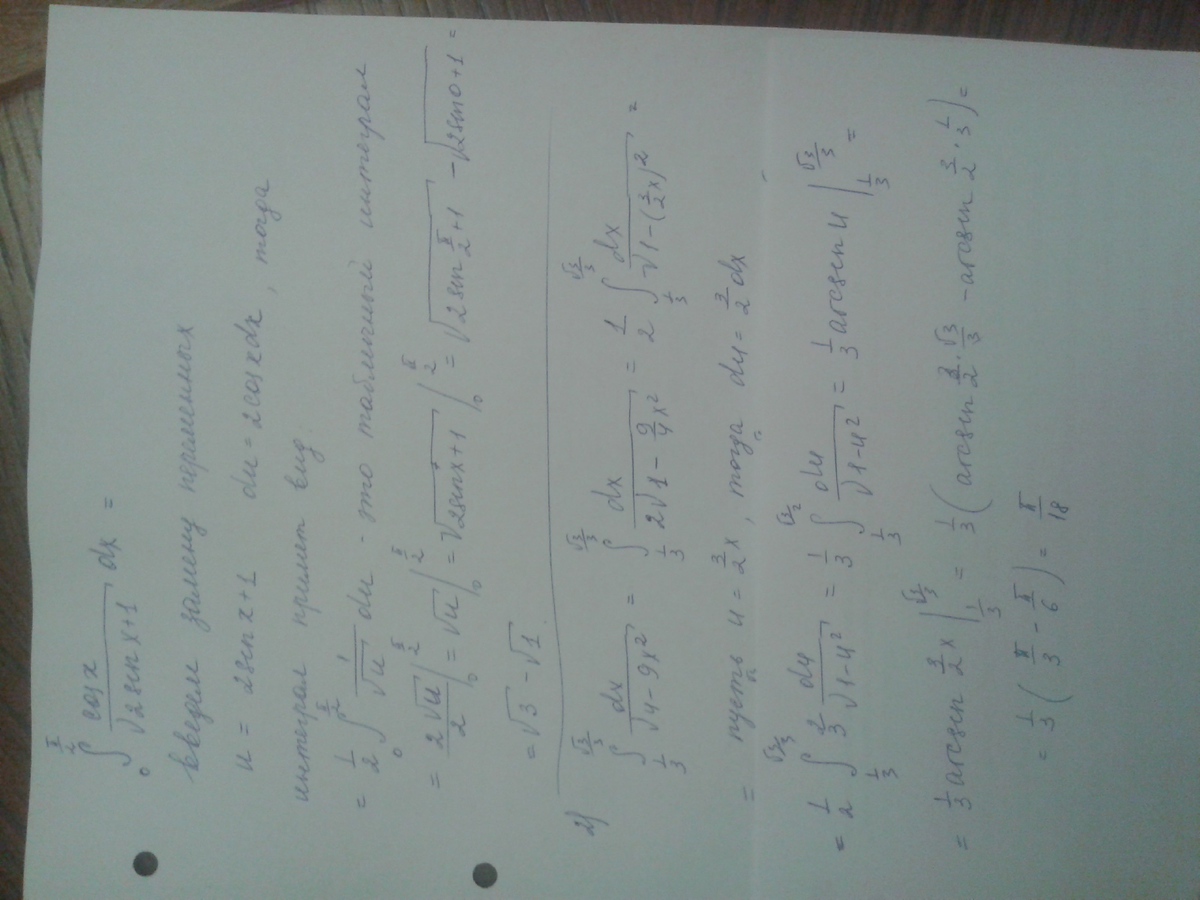 ∫₀^{π/2} cos x / √(2sin x+1) dx =
введем замену переменных
u = 2sin x+1 du = 2cos x dx, тогда
интеграл примет вид:
= 1/2 ∫₀^{π/2} 1/√u du - это табличный интеграл
= 2√u/2 |₀^{π/2} = √u |₀^{π/2} = √(2sin x+1) |₀^{π/2} = √(2sin π/2 +1) - √(2sin 0+1) =
= √3 - √1
2) ∫_{1/3}^{√3/3} dx/√(4-9x²) = ∫_{1/3}^{√3/3} dx/(2√(1- 9/4 x²)) = 1/2 ∫_{1/3}^{√3/3} dx/√(1-(3/2 x)²) =
= пусть u = 3/2 x, тогда du = 3/2 dx
= 1/2 ∫_{1/3}^{√3/3} 2/3 du/√(1-u²) = 1/3 ∫_{1/3}^{√3/2} du/√(1-u²) = 1/3 arcsin u |_{1/3}^{√3/3} =
= 1/3 arcsin 3/2 x |_{1/3}^{√3/3} = 1/3 (arcsin 3/2 · √3/3 - arcsin 3/2 · 1/3) =
= 1/3 (π/3 - π/6) = π/18